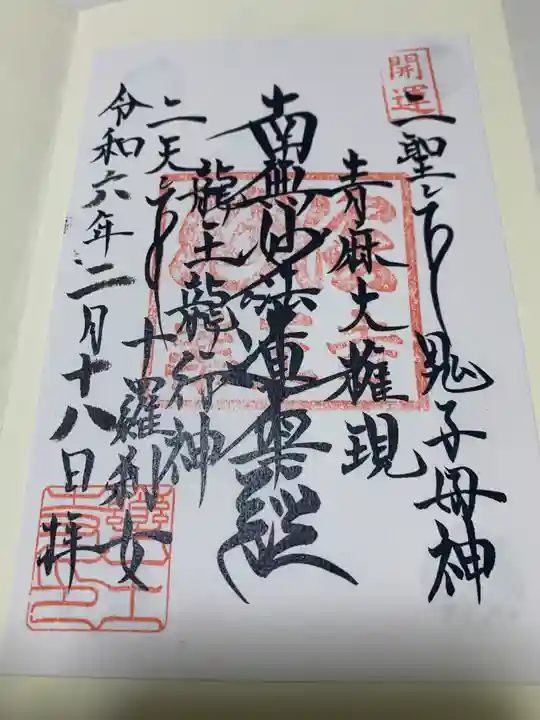 開運
二聖
鬼子母神
青麻大権現
南無妙法蓮華経
龍王龍神
二天
十羅刹女
令和六年二月十八日
拝